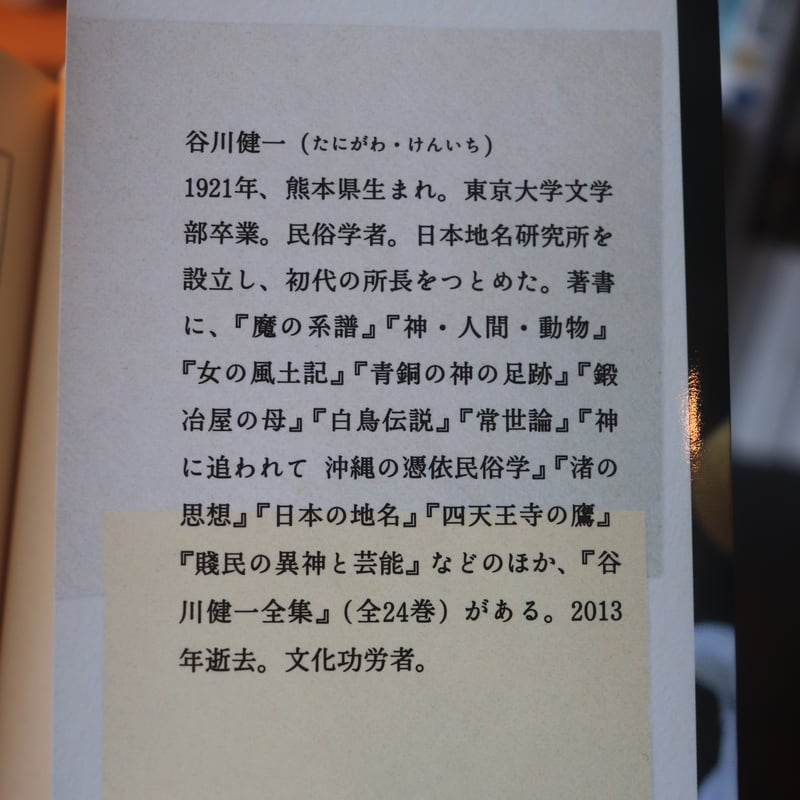 谷川健一（たにがわ・けんいち）
1921年、熊本県生まれ。東京大学文学
部卒業。民俗学者。日本地名研究所を
設立し、初代の所長をつとめた。著書
に、『魔の系譜』『神・人間・動物』
『女の風土記』『青銅の神の足跡』『鍛
冶屋の母』『白鳥伝説』『常世論』『神
に追われて 沖縄の憑依民俗学』『渚の
思想』『日本の地名』『四天王寺の鷹』
『賤民の異神と芸能』などのほか、『谷
川健一全集』（全24巻）がある。2013
年逝去。文化功労者。